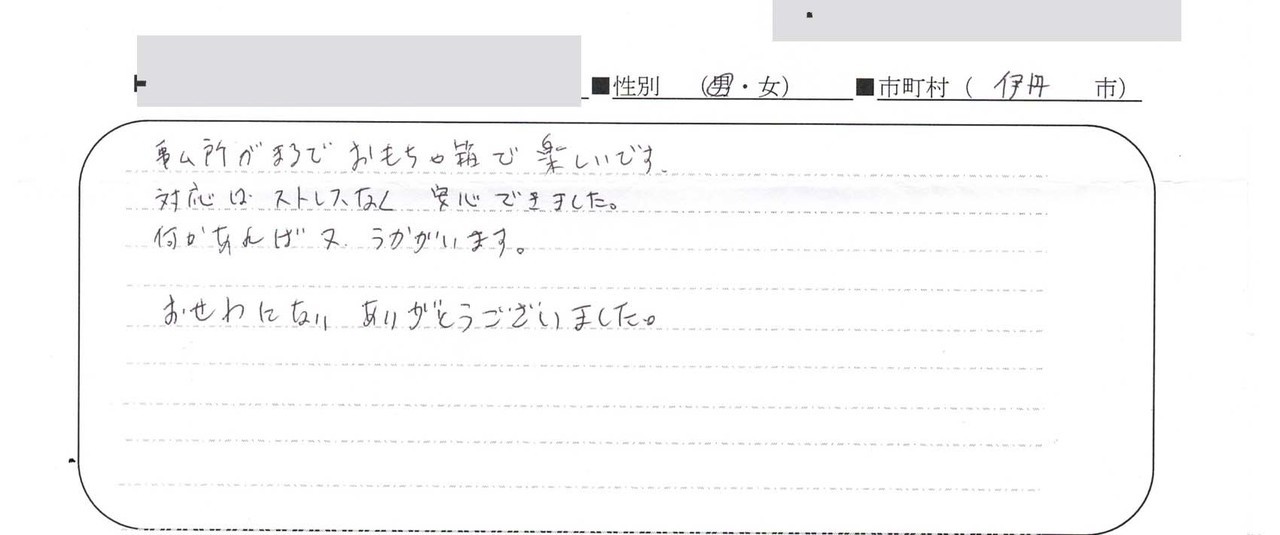 ■性別 (男・女) ■市町村 ( 伊丹 市)
事ム所がまるで おもちゃ箱で 楽しいです。
対応は ストレスなく 安心できました。
何かあれば又 うかがいます。
おせわになり ありがとうございました。